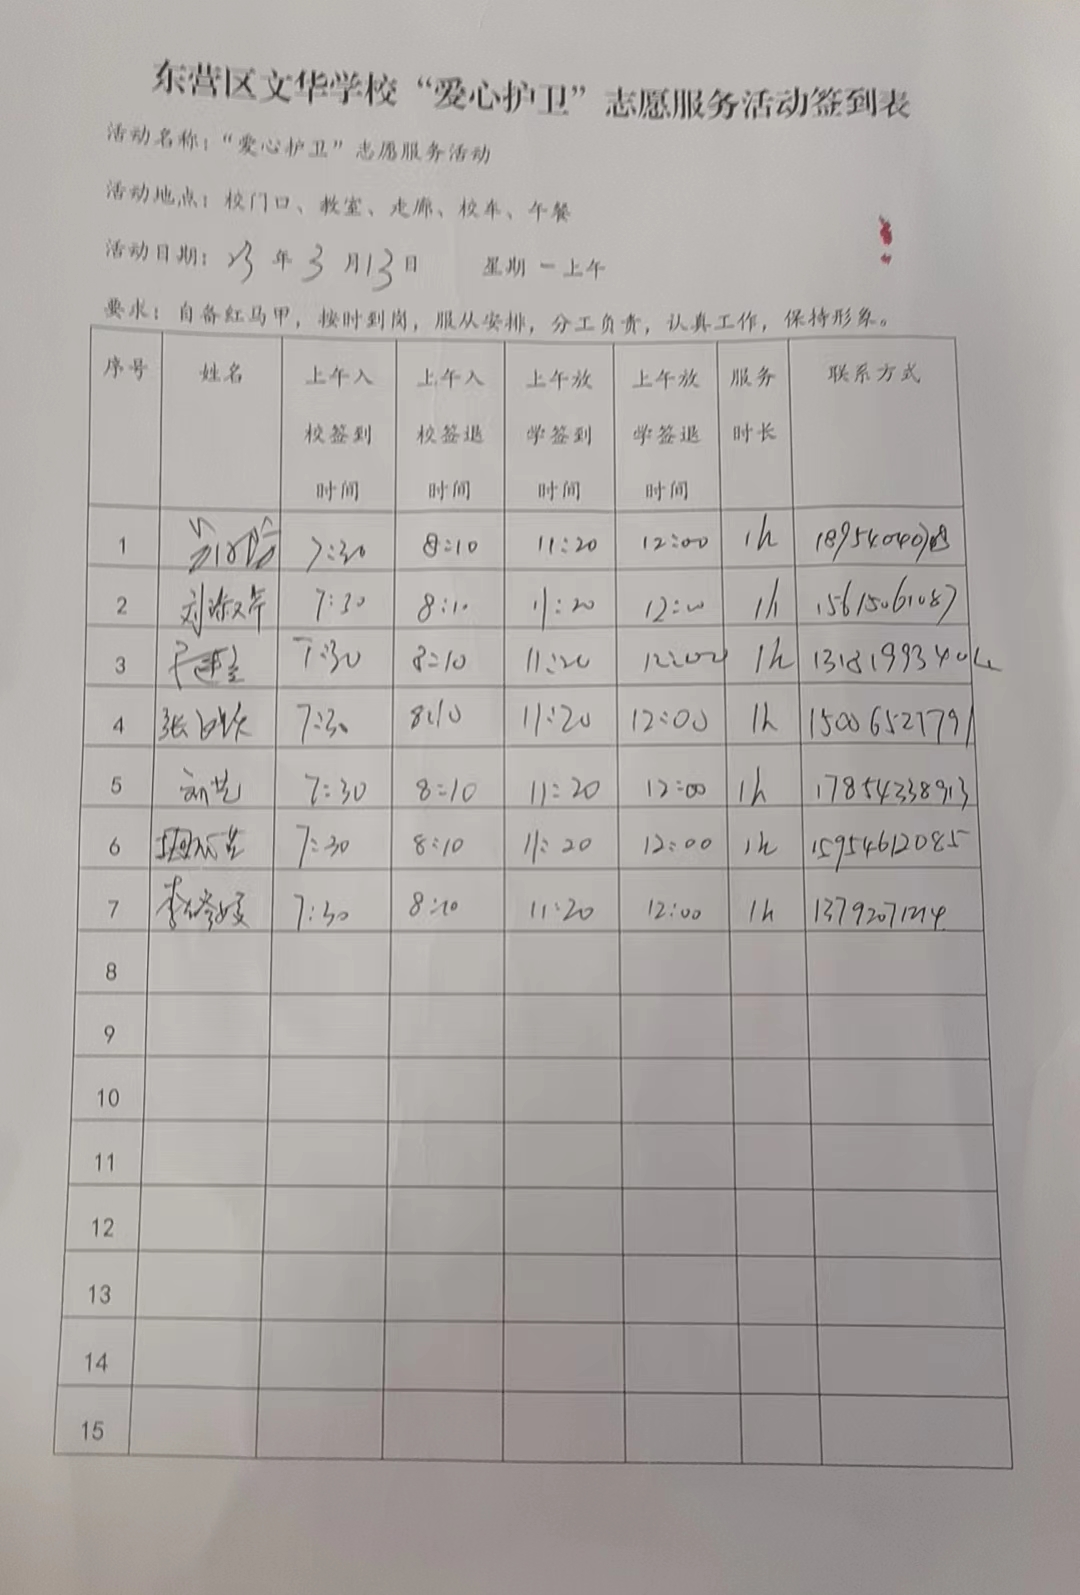 东营区文华学校“爱心护卫”志愿服务活动签到表
活动名称：“爱心护卫”志愿服务活动
活动地点：校门口、教室、走廊、校车、午餐
活动日期：23年3月13日 星期一上午
要求：自备红马甲，按时到岗，服从安排，分工负责，认真工作，保持形象。
序号 姓名 上午入校签到时间 上午入校签退时间 上午放学签到时间 上午放学签退时间 服务时长 联系方式
1 7:30 8:10 11:20 12:00 1h
2 7:30 8:10 11:20 12:00 1h 15615061087
3 7:30 8:10 11:20 12:00 1h
4 7:30 8:10 11:20 12:00 1h 15006521791
5 7:30 8:10 11:20 12:00 1h 17854238913
6 7:30 8:10 11:20 12:00 1h 15954612085
7 7:30 8:10 11:20 12:00 1h 13792071214
8
9
10
11
12
13
14
15